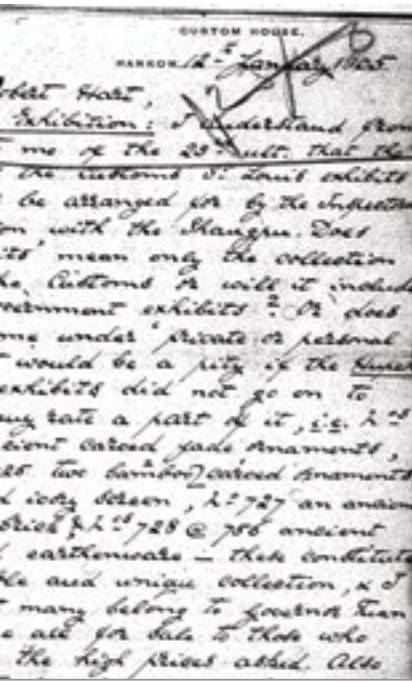 CUSTOM HOUSE,
HANKOW, 12th January 1905
obert Hart,
Exhibition: I understand from
t me of the 23rd ult. that the
t the Customs St. Louis exhibits
be arranged for by the Inspectora
on with the Shangpu. Does
its" mean only the collection
he Customs or will it include
vernment exhibits? Or does
me under "private or personal
t would be a pity if the
exhibits did not go on to
any rate a part of it, i.e. Nos
cient carved jade ornaments,
two bamboo carved ornaments
d ivory screen, No 727 an ancien
brick & Nos 728 @ 786 ancient
earthenware — these constitute
le and unique collection, & I
t many belong to Governor Tuan
e all for sale to those who
the high prices asked. Also